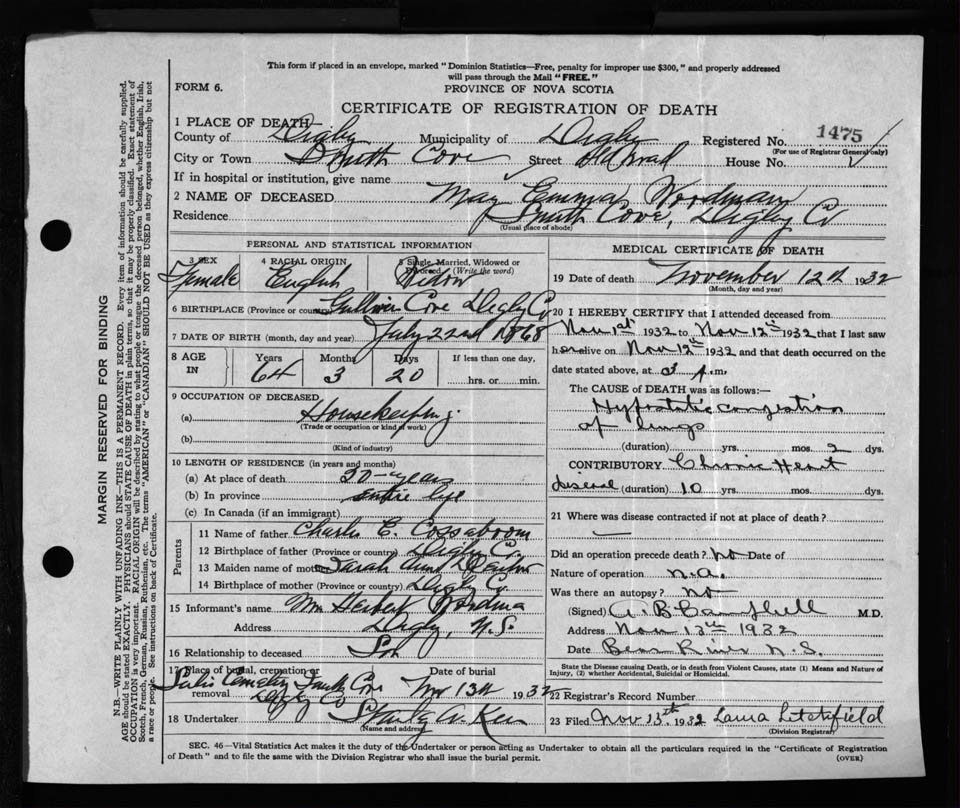 This form if placed in an envelope, marked "Dominion Statistics—Free, penalty for improper use $300," and properly addressed
will pass through the Mail "FREE."
FORM 6.
PROVINCE OF NOVA SCOTIA
CERTIFICATE OF REGISTRATION OF DEATH
1 PLACE OF DEATH
County of Digby Municipality of Digby Registered No. 1475
(For use of Registrar General only)
City or Town Smith Cove Street Old Road House No.
If in hospital or institution, give name
2 NAME OF DECEASED May Emma Woodman
Residence Smith Cove, Digby Co
(Usual place of abode)
PERSONAL AND STATISTICAL INFORMATION
3 SEX 4 RACIAL ORIGIN 5 Single, Married, Widowed or Divorced (Write the word)
Female English Widow
6 BIRTHPLACE (Province or country) Gullivers Cove Digby Co
7 DATE OF BIRTH (month, day and year) July 22nd 1868
8 AGE IN Years Months Days If less than one day,
64 3 20 hrs. or min.
9 OCCUPATION OF DECEASED
(a) Housekeeping
(Trade or occupation or kind of work)
(b)
(Kind of industry)
10 LENGTH OF RESIDENCE (in years and months)
(a) At place of death 20 years
(b) In province entire life
(c) In Canada (if an immigrant)
Parents
11 Name of father Charles E. Cossaboom
12 Birthplace of father (Province or country) Digby Co.
13 Maiden name of mother Sarah Ann
14 Birthplace of mother (Province or country) Digby Co.
15 Informant's name Herbert
Address Digby, N.S.
16 Relationship to deceased Son
17 Place of burial, cremation or removal Date of burial
Cemetery Smith Cove Digby Co Nov 13th 1932
18 Undertaker
(Name and address)
MEDICAL CERTIFICATE OF DEATH
19 Date of death November 12th 1932
(Month, day and year)
20 I HEREBY CERTIFY that I attended deceased from
Nov 1st 1932 to Nov 12th 1932 that I last saw
her alive on Nov 12th 1932 and that death occurred on the
date stated above, at 3 A.m.
The CAUSE of DEATH was as follows:—
Hypostatic congestion
of lungs
(duration) yrs. mos. 2 dys.
CONTRIBUTORY Chronic Heart
disease (duration) 10 yrs. mos. dys.
21 Where was disease contracted if not at place of death?
Did an operation precede death? no Date of
Nature of operation n.a.
Was there an autopsy? no
(Signed) A. B. Campbell M.D.
Address Nov 13th 1932
Date Bear River N.S.
State the Disease causing Death, or in death from Violent Causes, state (1) Means and Nature of
Injury, (2) whether Accidental, Suicidal or Homicidal.
22 Registrar's Record Number
23 Filed Nov 15th 1932 Laura
(Division Registrar)
SEC. 46—Vital Statistics Act makes it the duty of the Undertaker or person acting as Undertaker to obtain all the particulars required in the "Certificate of Registration
of Death" and to file the same with the Division Registrar who shall issue the burial permit.
(OVER)
MARGIN RESERVED FOR BINDING
N.B.—WRITE PLAINLY WITH UNFADING INK—THIS IS A PERMANENT RECORD. Every item of information should be carefully supplied.
AGE should be stated EXACTLY. PHYSICIANS should STATE CAUSE OF DEATH in plain terms, so that it may be properly classified. Exact statement of
OCCUPATION is very important. RACIAL ORIGIN will be described by stating to what people or tongue the deceased person belonged, whether English, Irish,
Scotch, French, German, Russian, Ruthenian, etc. The terms "AMERICAN" or "CANADIAN" SHOULD NOT BE USED as they express citizenship but not
a race or people. See instructions on back of Certificate.